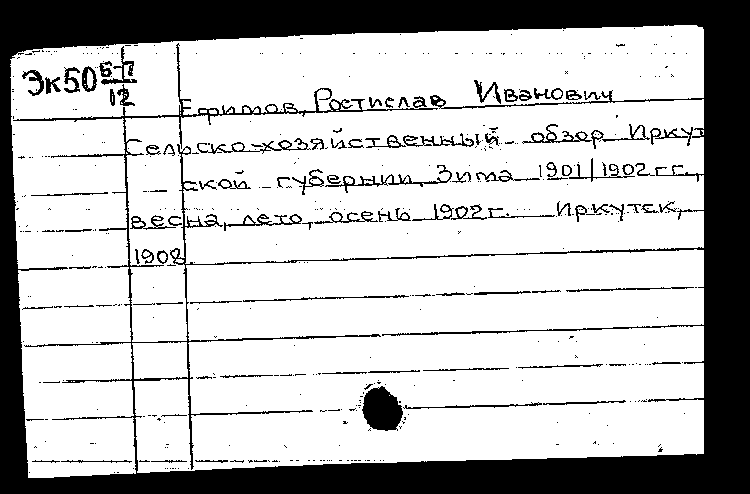 Эк50 Б-7
12
Ефимов, Ростислав Иванович
Сельско-хозяйственный обзор Иркут
ской губернии. Зима 1901/1902 гг.,
весна, лето, осень 1902 г. Иркутск,
1902.